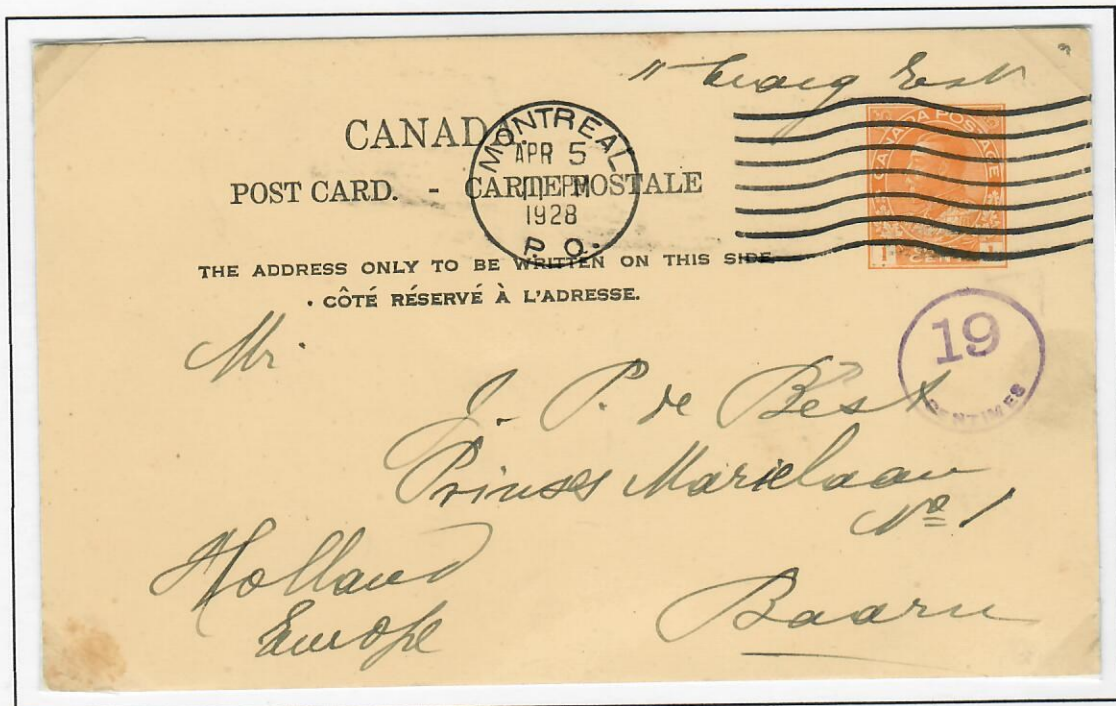 11 Craig East
CANADA
POST CARD. - CARTE POSTALE
MONTREAL
APR 5
PM
1928
P.Q.
CANADA POSTAGE
1 CENT 1
THE ADDRESS ONLY TO BE WRITTEN ON THIS SIDE.
CÔTÉ RÉSERVÉ À L'ADRESSE.
19
CENTIMES
Mr.
J. P. de Best
Prinses Marielaan
No 1
Holland
Europe
Baarn